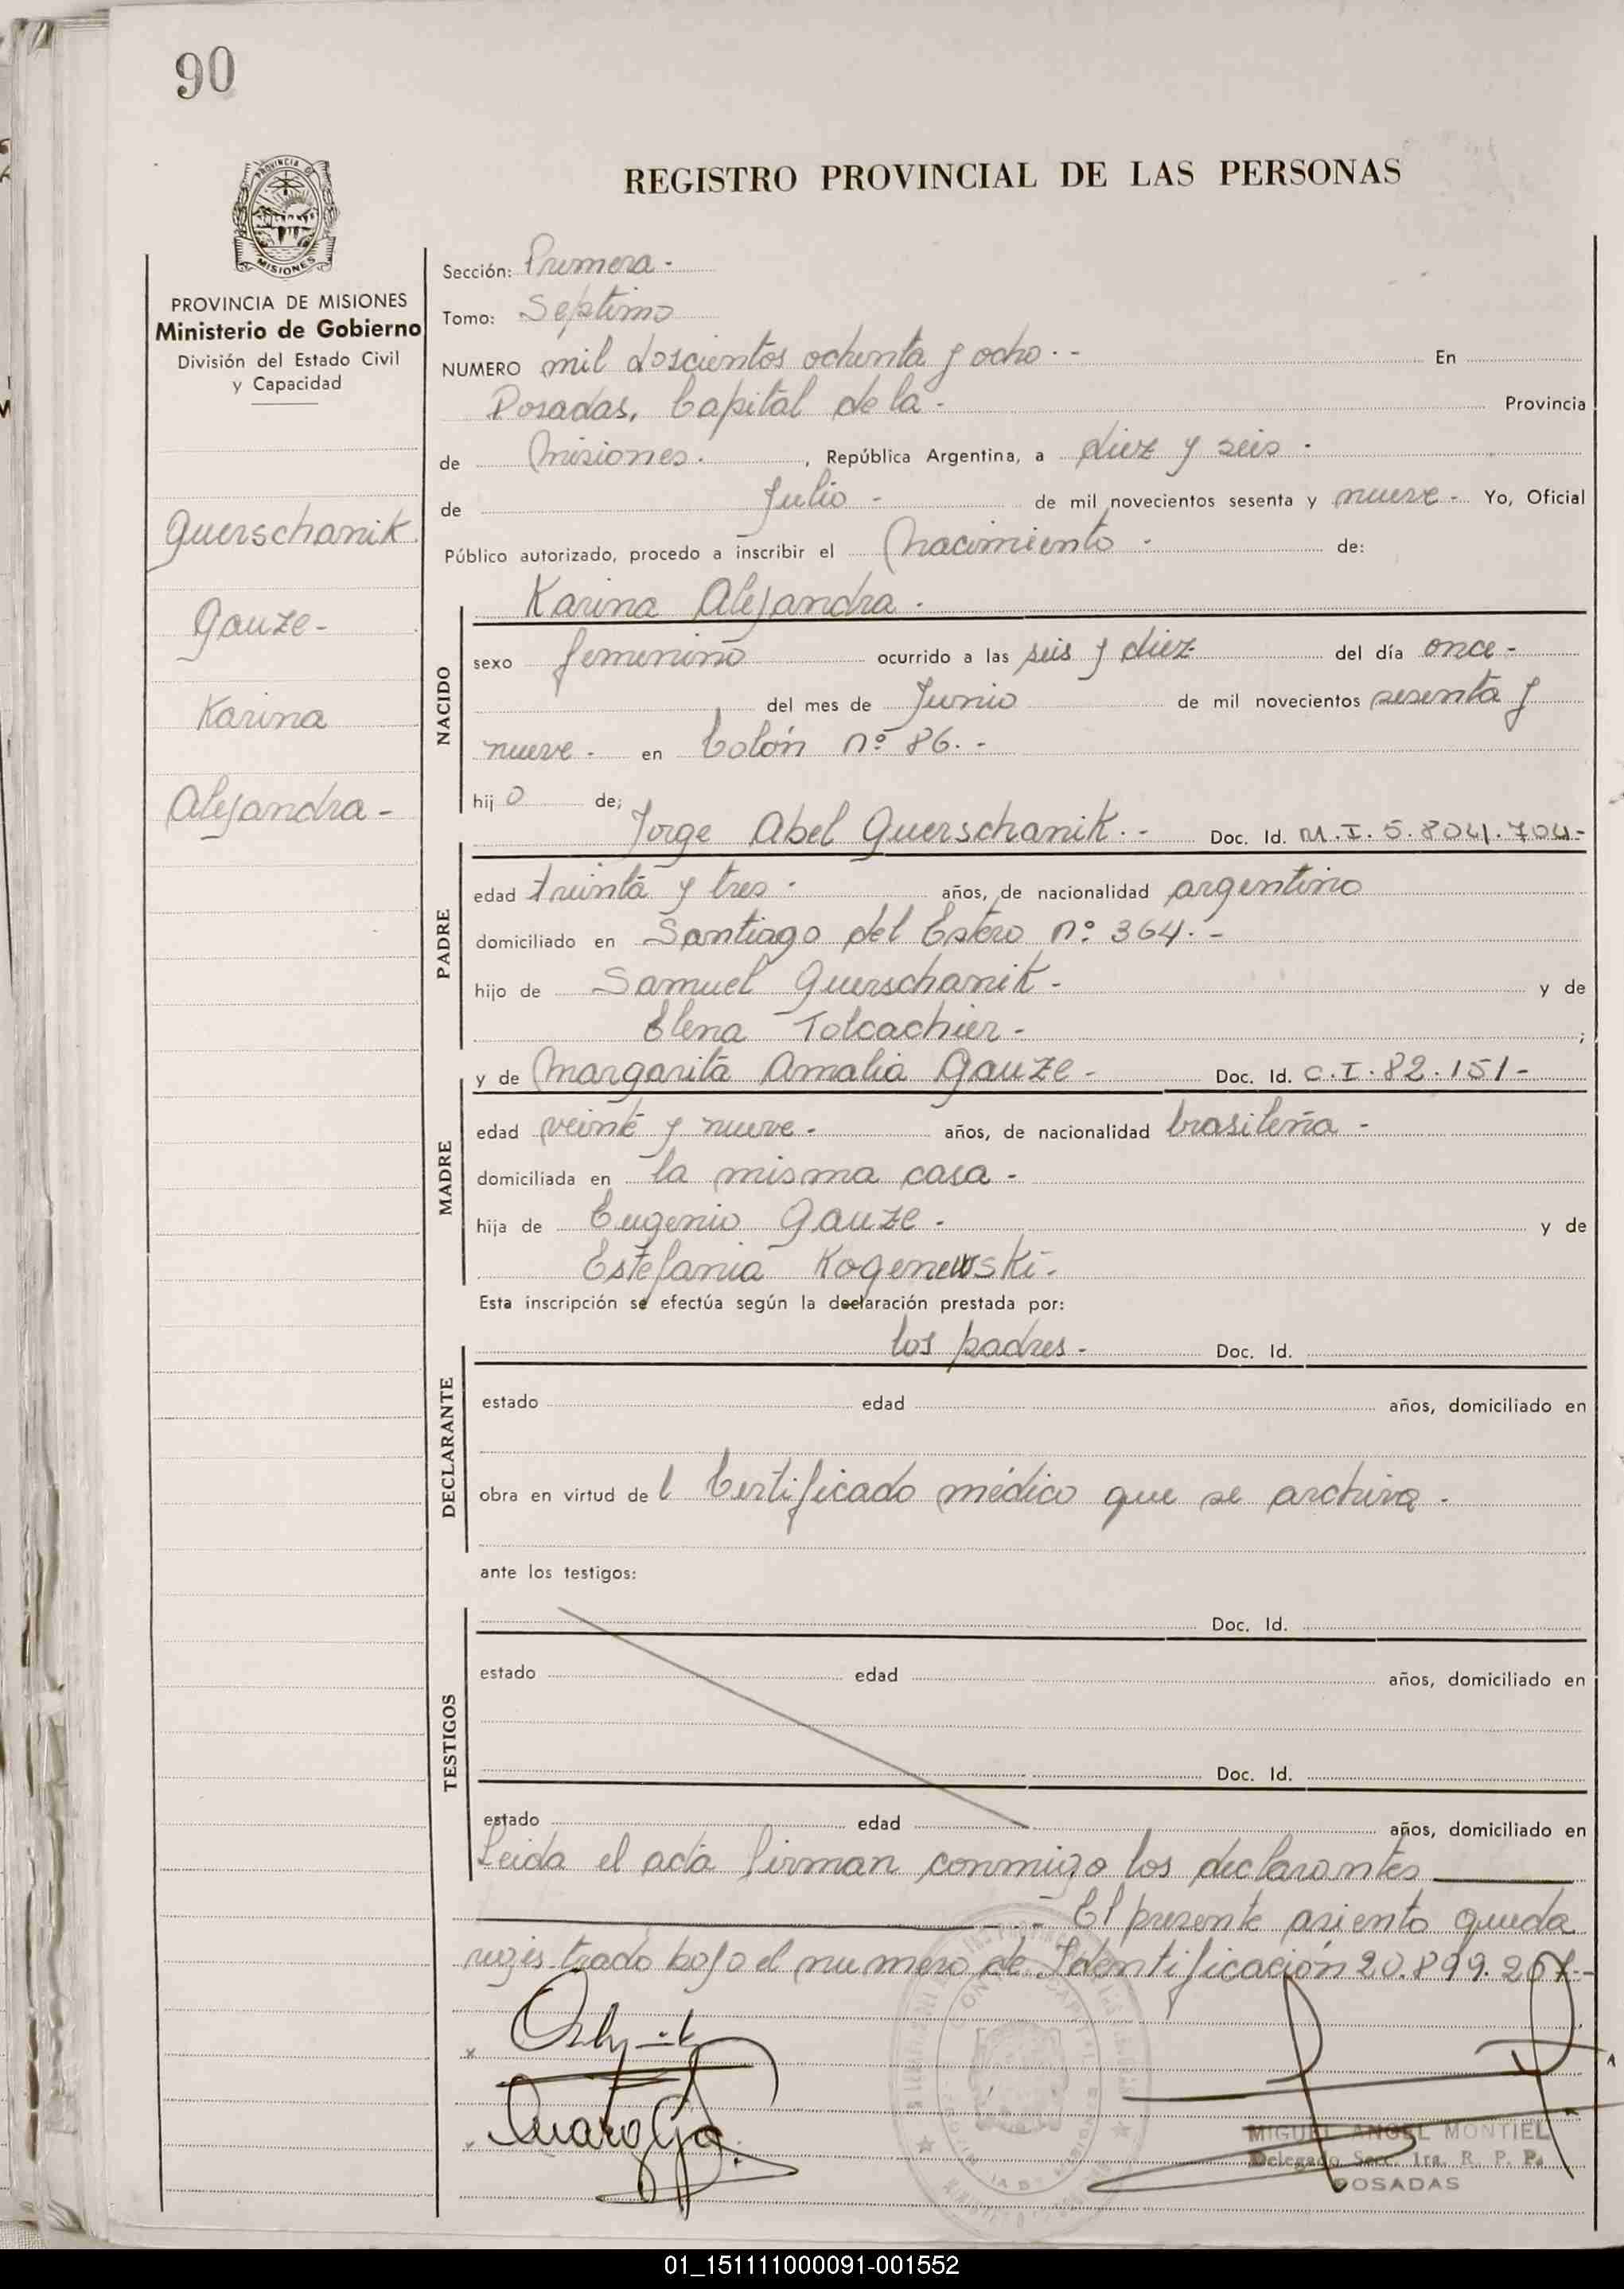 90
PROVINCIA DE
MISIONES
REGISTRO PROVINCIAL DE LAS PERSONAS
PROVINCIA DE MISIONES
Ministerio de Gobierno
División del Estado Civil
y Capacidad
Guerschanik
Gauze-
Karina
Alejandra-
Sección: Primera.-
Tomo: Séptimo
NUMERO mil doscientos ochenta y ocho.- En
Posadas, Capital de la.- Provincia
de Misiones. , República Argentina, a diez y seis.
de Julio- de mil novecientos sesenta y nueve- Yo, Oficial
Público autorizado, procedo a inscribir el Nacimiento- de:
Karina Alejandra.
NACIDO
sexo femenino ocurrido a las seis y diez del día once-
del mes de Junio de mil novecientos sesenta y
nueve- en Colón nº 86.-
hijo de;
Jorge Abel Guerschanik.- Doc. Id. M.I. 5.804.704-
PADRE
edad treinta y tres. años, de nacionalidad argentino
domiciliado en Santiago del Estero nº 364.-
hijo de Samuel Guerschanik- y de
Elena Tolcachier- ;
y de Margarita Amalia Gauze- Doc. Id. C.I. 82.151-
MADRE
edad veinte y nueve- años, de nacionalidad brasileña-
domiciliada en la misma casa-
hija de Eugenio Gauze- y de
Estefania Kogenewski-
Esta inscripción se efectúa según la declaración prestada por:
los padres- Doc. Id.
DECLARANTE
estado edad años, domiciliado en
obra en virtud del Certificado médico que se archiva-
ante los testigos:
TESTIGOS
Doc. Id.
estado edad años, domiciliado en
Doc. Id.
estado edad años, domiciliado en
Leida el acta firman conmigo los declarantes
El presente asiento queda
registrado bajo el numero de Identificación 20.899.267.-
MIGUEL ANGEL MONTIEL
Delegado Secc. 1ra. R. P. P.
POSADAS
01_151111000091-001552